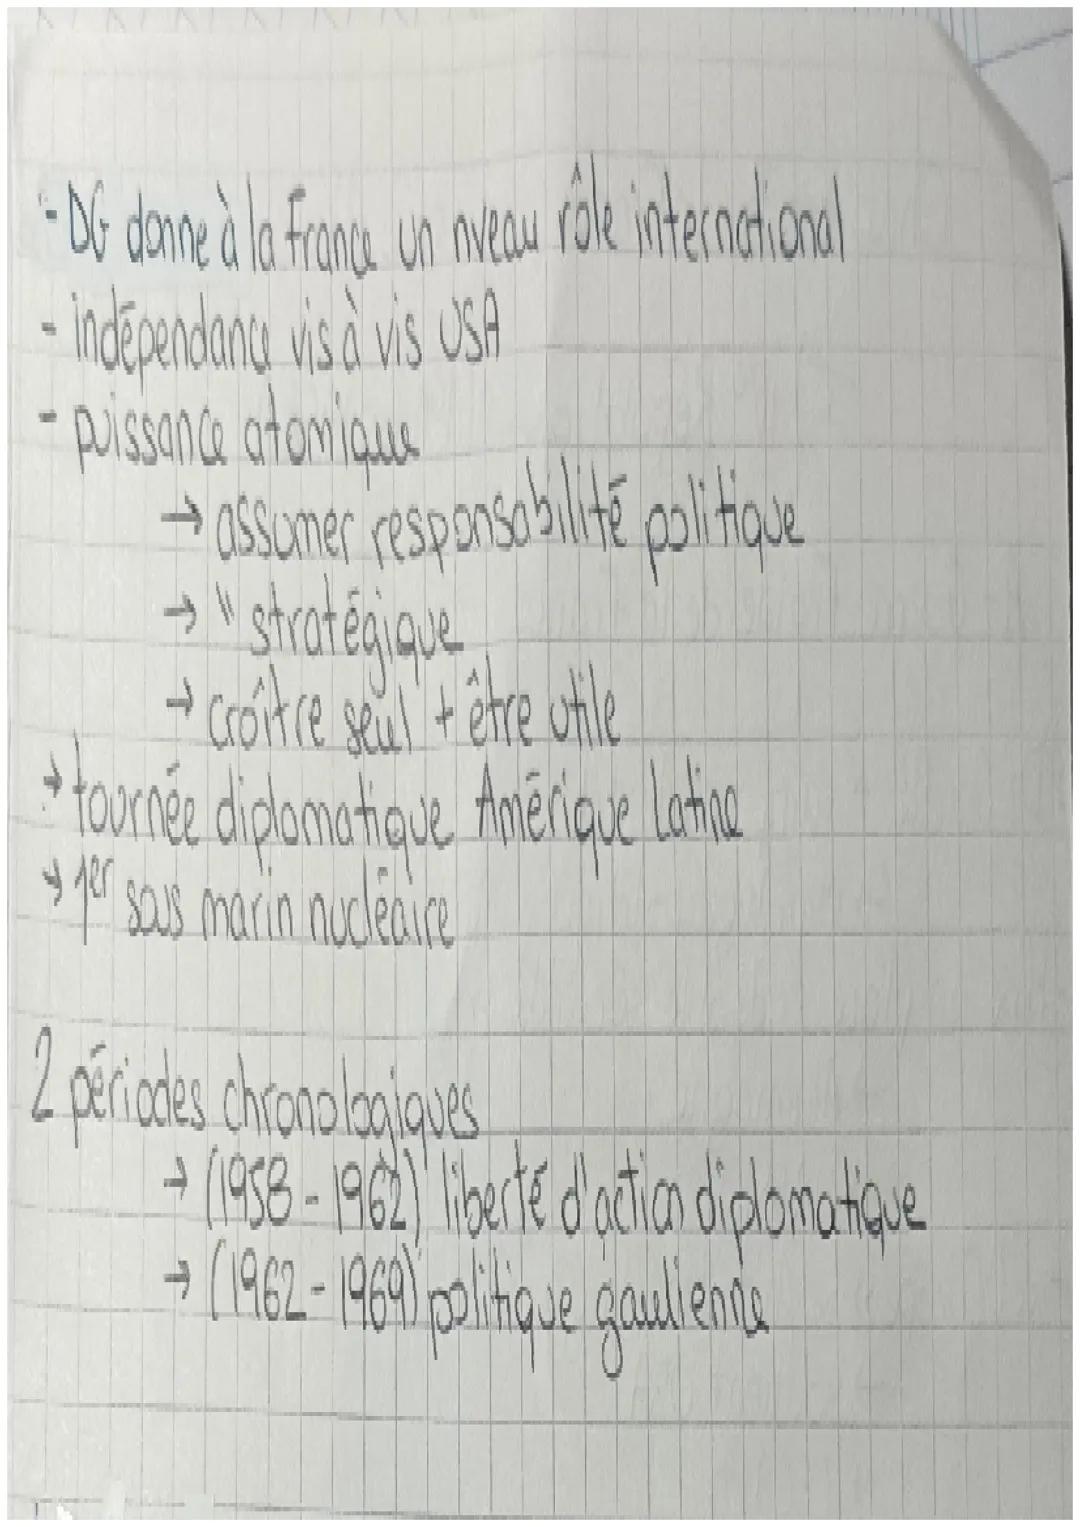 - DG donne à la France un nveau rôle international
- indépendance vis à vis USA
- puissance atomique
→ assumer responsabilité politique
→ " stratégique
→ croître seul + être utile
→ tournée diplomatique Amérique Latine
→ 1er sous marin nucléaire
2 périodes chronologiques
→ (1958 - 1962) liberté d'action diplomatique
→ (1962 - 1969) politique gaulienne